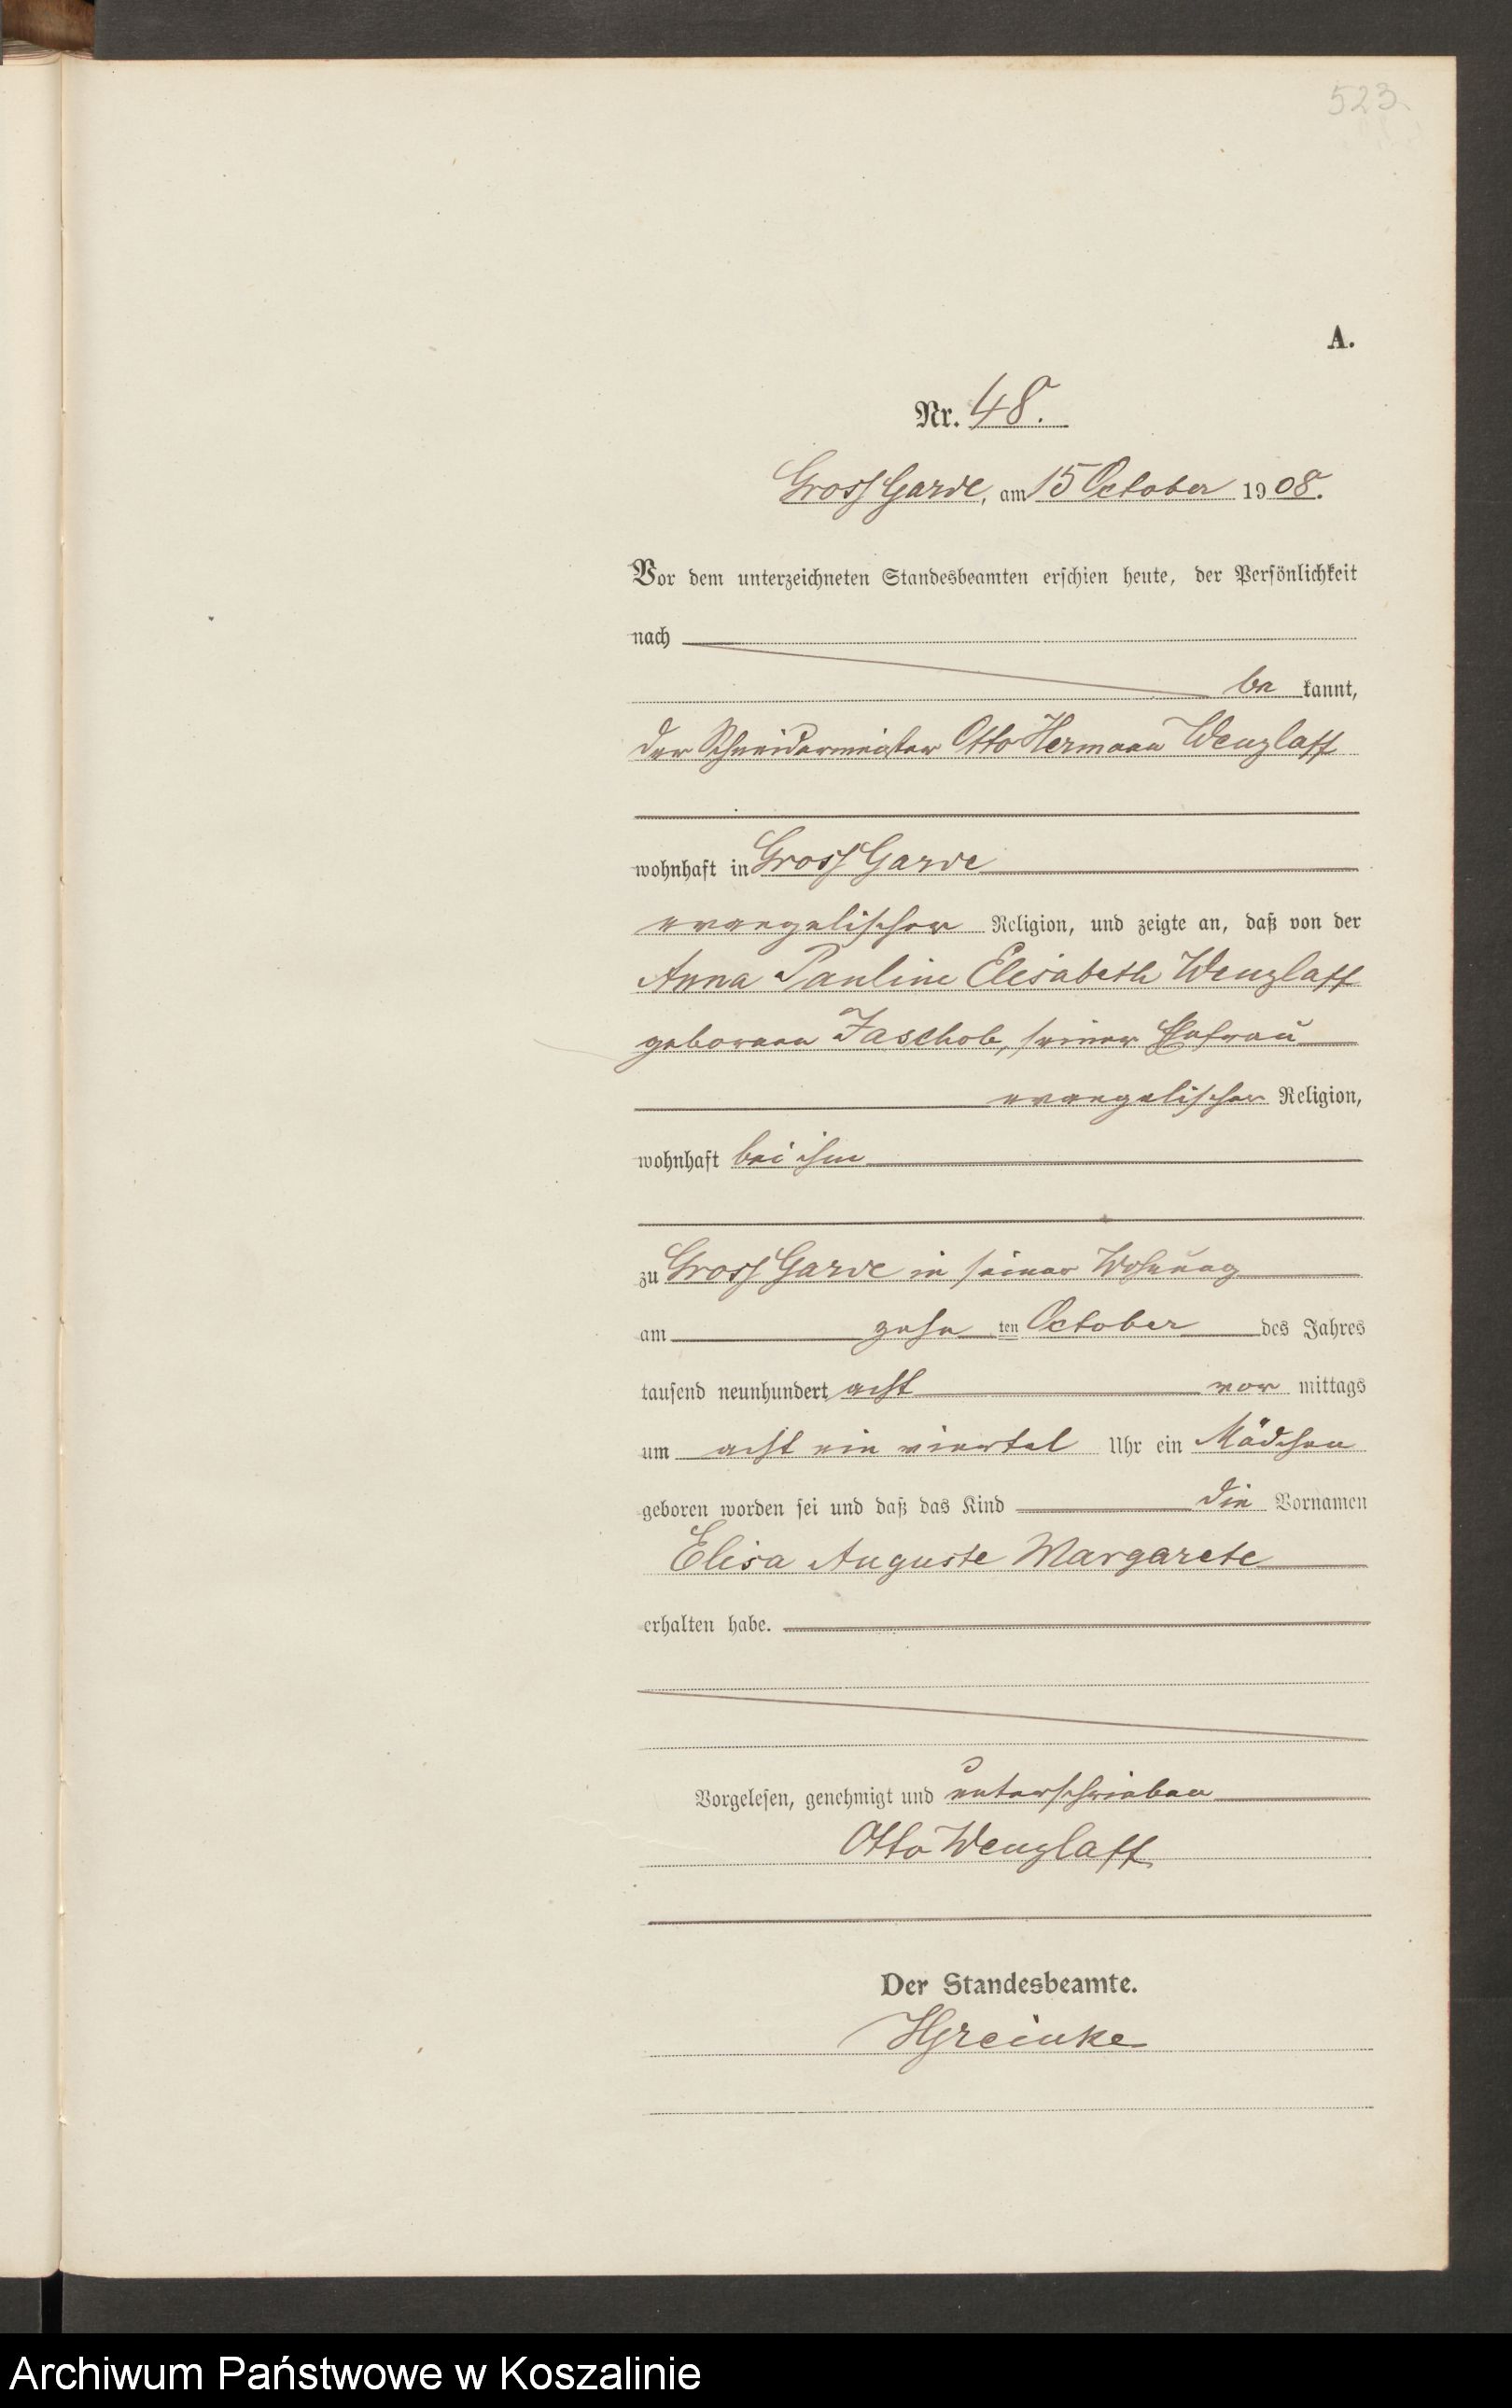 523
A.
Nr. 48.
Gross Garde, am 15 October 1908.
Vor dem unterzeichneten Standesbeamten erschien heute, der Persönlichkeit
nach
be kannt,
der Schneidermeister Otto Hermann Wenzlaff
wohnhaft in Gross Garde
evangelischer Religion, und zeigte an, daß von der
Anna Pauline Elisabeth Wenzlaff
geborenen Jaschob, seiner Ehefrau
evangelischer Religion,
wohnhaft bei ihm
zu Gross Garde in seiner Wohnung
am zehn ten October des Jahres
tausend neunhundert acht vor mittags
um acht ein viertel Uhr ein Mädchen
geboren worden sei und daß das Kind die Vornamen
Elisa Auguste Margarete
erhalten habe.
Vorgelesen, genehmigt und unterschrieben
Otto Wenzlaff
Der Standesbeamte.
Archiwum Państwowe w Koszalinie